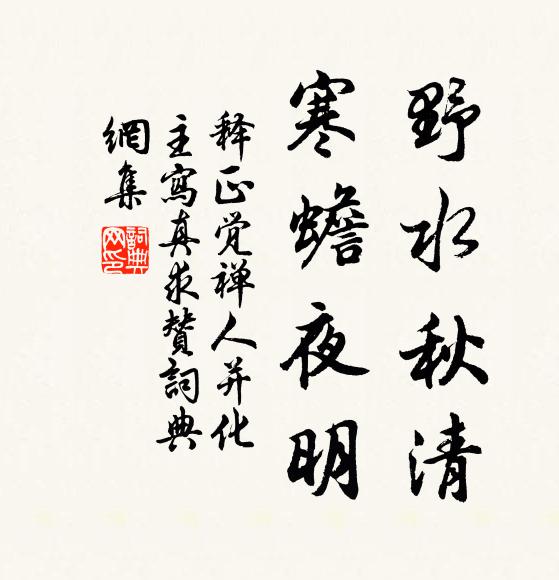 野水秋清
寒蟾夜明
释正觉禅人并化
主寫真求贊詞典
網集
詞典
网印